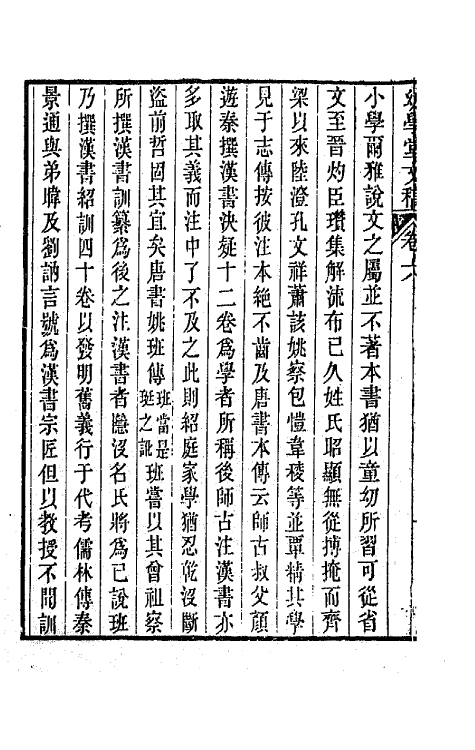 幼學堂文稿 卷六
小學爾雅說文之屬並不著本書猶以童幼所習可從省
文至晉灼臣瓚集解流布已久姓氏昭顯無從搏掩而齊
梁以來陸澄孔文祥蕭該姚察包愷韋稜等並覃精其學
見于志傳按彼注本絶不齒及唐書本傳云師古叔父顔
遊秦撰漢書決疑十二卷爲學者所稱後師古注漢書亦
多取其義而注中了不及之此則紹庭家學猶忍乾沒斷
盜前哲固其宜矣唐書姚班傳班當是珽之訛班嘗以其曾祖察
所撰漢書訓纂爲後之注漢書者隱沒名氏將爲已說班
乃撰漢書紹訓四十卷以發明舊義行于代考儒林傳秦
景通與弟暐及劉訥言號爲漢書宗匠但以教授不聞訓